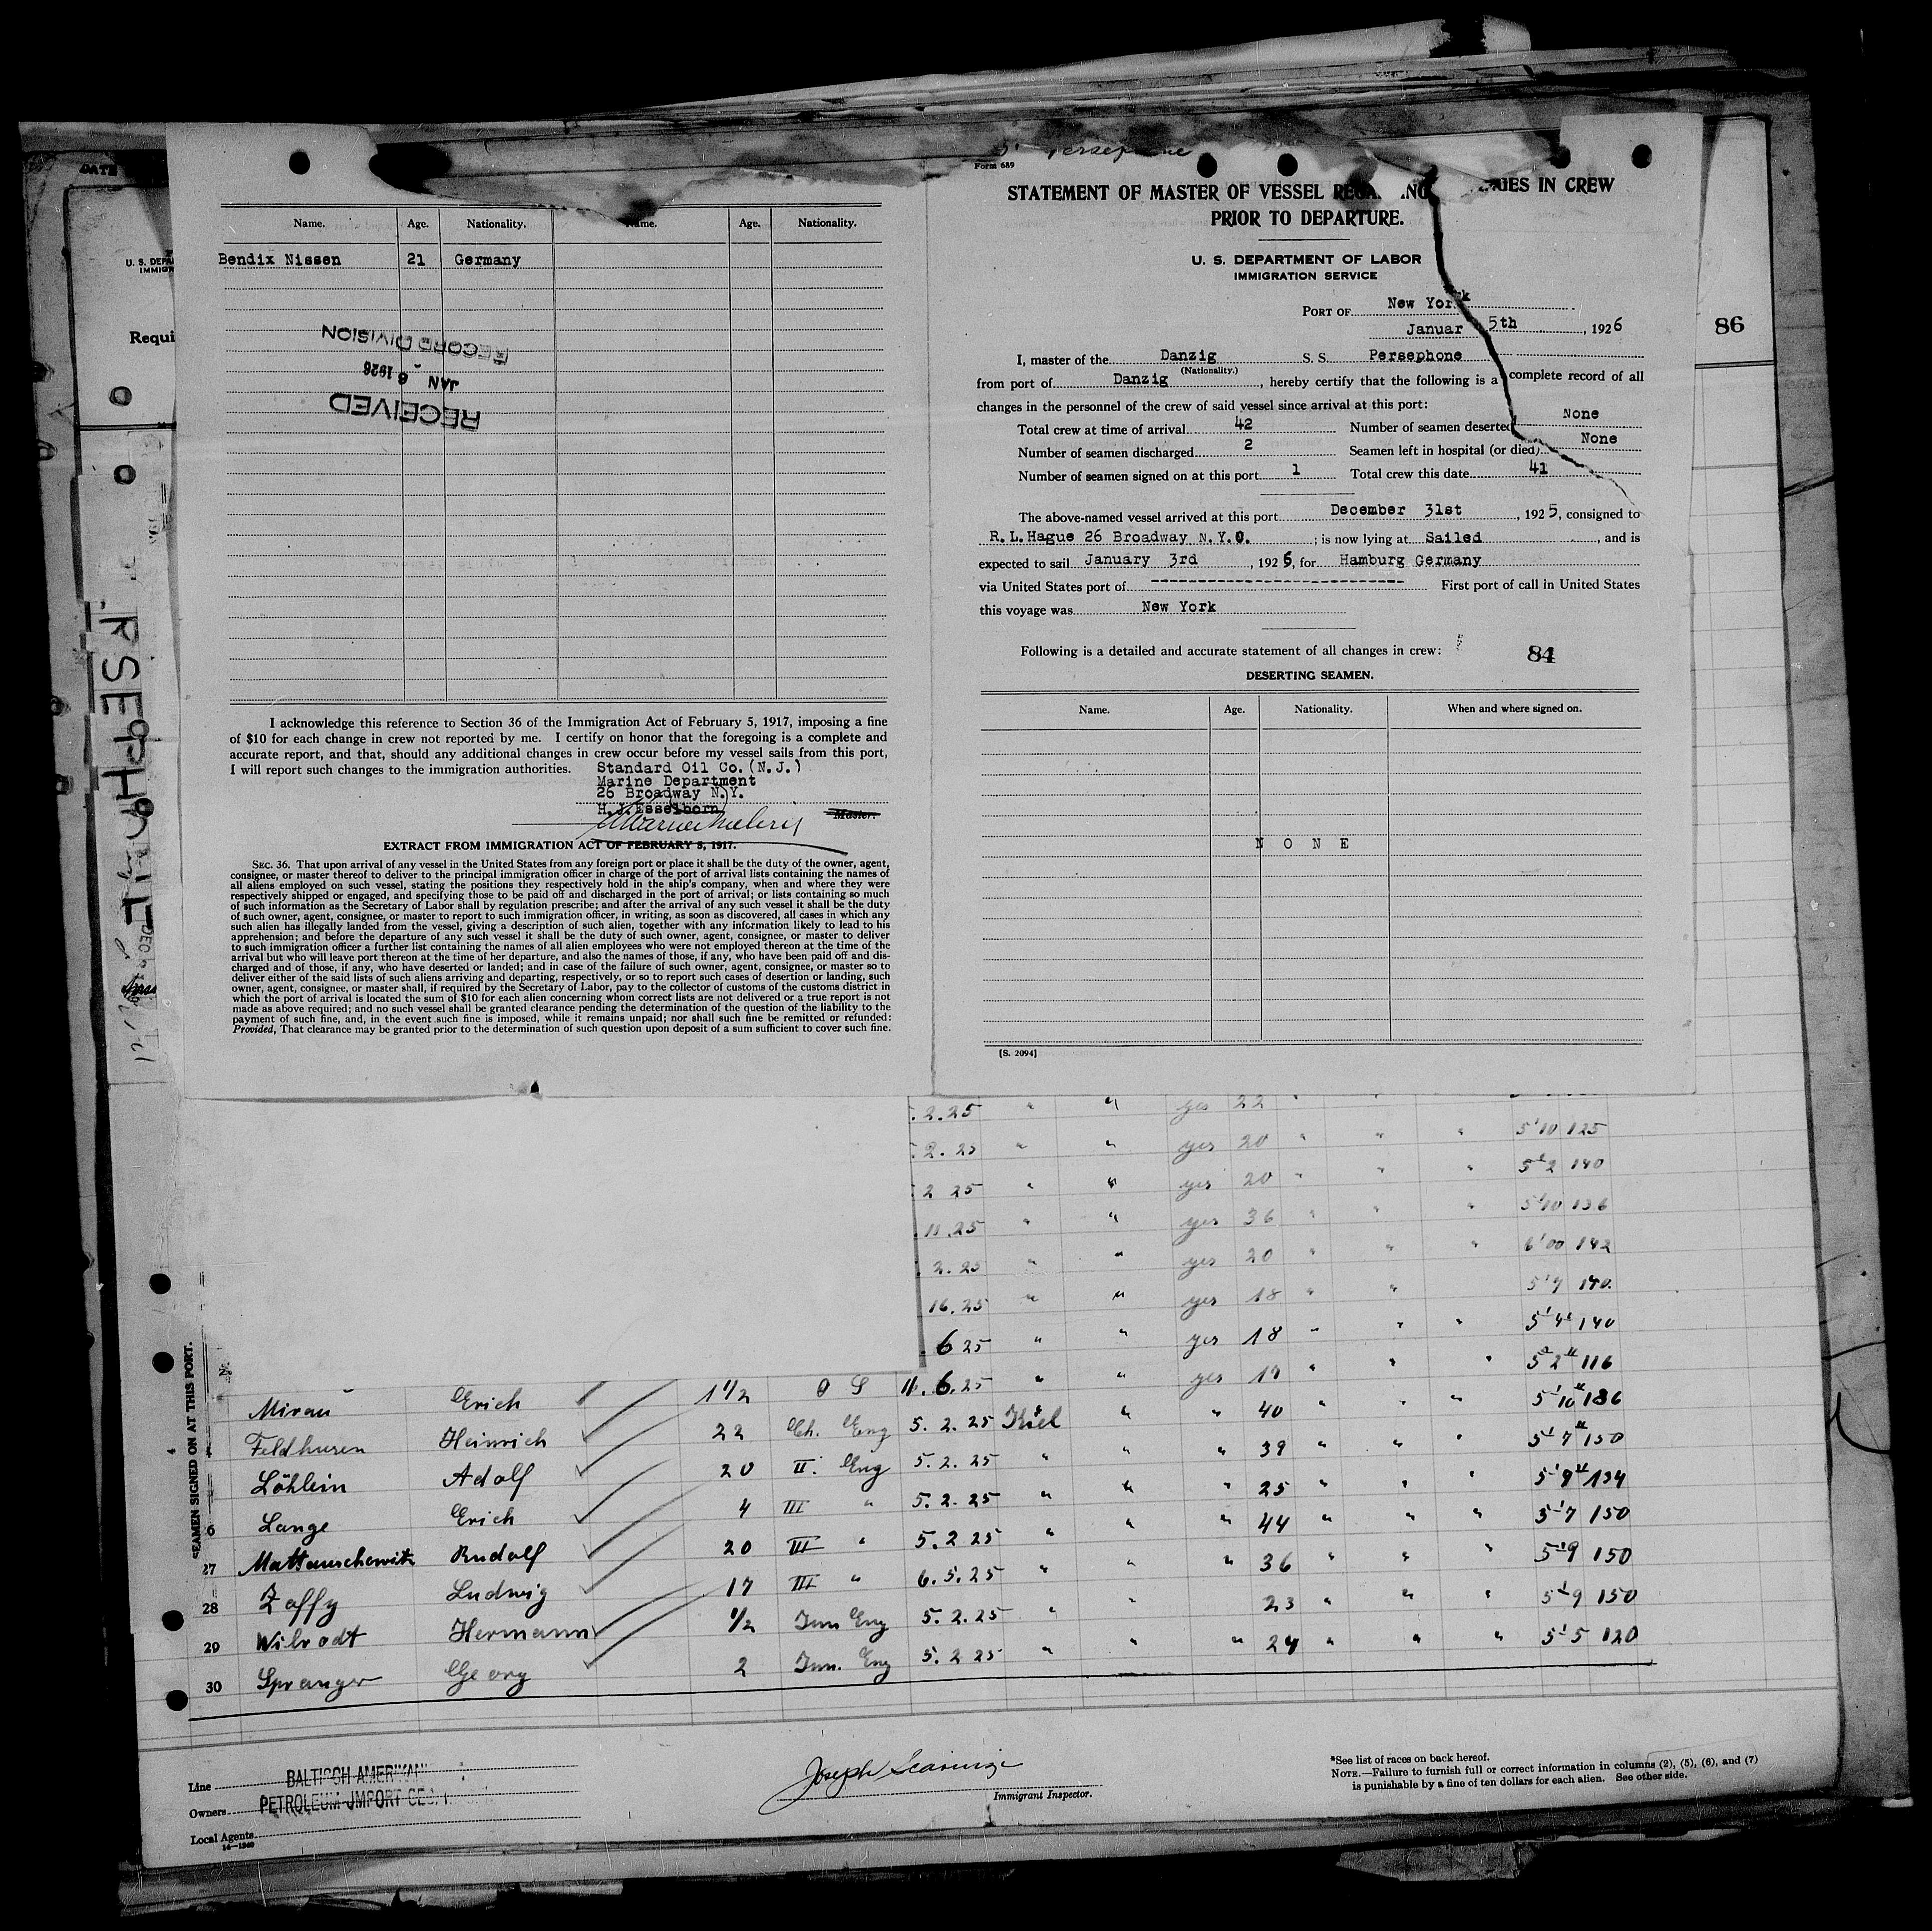 DATE
U. S. DEPA
IMMIGR
Requi
RSEPHONE
SEAMEN SIGNED ON AT THIS PORT.
Name. Age. Nationality. Name. Age. Nationality.
Bendix Nissen 21 Germany
RECEIVED
JAN 6 1926
RECORD DIVISION
I acknowledge this reference to Section 36 of the Immigration Act of February 5, 1917, imposing a fine
of $10 for each change in crew not reported by me. I certify on honor that the foregoing is a complete and
accurate report, and that, should any additional changes in crew occur before my vessel sails from this port,
I will report such changes to the immigration authorities. Standard Oil Co.(N.J.)
Marine Department
26 Broadway N.Y.
H.J.Esselborn
Master.
EXTRACT FROM IMMIGRATION ACT OF FEBRUARY 5, 1917.
SEC. 36. That upon arrival of any vessel in the United States from any foreign port or place it shall be the duty of the owner, agent,
consignee, or master thereof to deliver to the principal immigration officer in charge of the port of arrival lists containing the names of
all aliens employed on such vessel, stating the positions they respectively hold in the ship's company, when and where they were
respectively shipped or engaged, and specifying those to be paid off and discharged in the port of arrival; or lists containing so much
of such information as the Secretary of Labor shall by regulation prescribe; and after the arrival of any such vessel it shall be the duty
of such owner, agent, consignee, or master to report to such immigration officer, in writing, as soon as discovered, all cases in which any
such alien has illegally landed from the vessel, giving a description of such alien, together with any information likely to lead to his
apprehension; and before the departure of any such vessel it shall be the duty of such owner, agent, consignee, or master to deliver
to such immigration officer a further list containing the names of all alien employees who were not employed thereon at the time of the
arrival but who will leave port thereon at the time of her departure, and also the names of those, if any, who have been paid off and dis-
charged and of those, if any, who have deserted or landed; and in case of the failure of such owner, agent, consignee, or master so to
deliver either of the said lists of such aliens arriving and departing, respectively, or so to report such cases of desertion or landing, such
owner, agent, consignee, or master shall, if required by the Secretary of Labor, pay to the collector of customs of the customs district in
which the port of arrival is located the sum of $10 for each alien concerning whom correct lists are not delivered or a true report is not
made as above required; and no such vessel shall be granted clearance pending the determination of the question of the liability to the
payment of such fine, and, in the event such fine is imposed, while it remains unpaid; nor shall such fine be remitted or refunded:
Provided, That clearance may be granted prior to the determination of such question upon deposit of a sum sufficient to cover such fine.
Persephone
Form 689
STATEMENT OF MASTER OF VESSEL REGARDING CHANGES IN CREW
PRIOR TO DEPARTURE.
U. S. DEPARTMENT OF LABOR
IMMIGRATION SERVICE
PORT OF New York
Januar 5th, 1926
I, master of the Danzig S. S. Persephone
(Nationality.)
from port of Danzig, hereby certify that the following is a complete record of all
changes in the personnel of the crew of said vessel since arrival at this port:
Total crew at time of arrival 42 Number of seamen deserted None
Number of seamen discharged 2 Seamen left in hospital (or died) None
Number of seamen signed on at this port 1 Total crew this date 41
The above-named vessel arrived at this port December 31st, 1925, consigned to
R.L.Hague 26 Broadway N.Y.C.; is now lying at Sailed, and is
expected to sail January 3rd, 1926, for Hamburg Germany
via United States port of First port of call in United States
this voyage was New York
Following is a detailed and accurate statement of all changes in crew:
84
DESERTING SEAMEN.
Name. Age. Nationality. When and where signed on.
N O N E
[S. 2094]
86
.2.25 " " yes 22 "
2.25 " " yes 20 " " " 5'10 125
2 25 " " yes 20 " " " 5'2 140
11.25 " " yes 36 " " " 5'10 136
2.25 " " yes 20 " " " 6'00 142
16.25 " " yes 18 " " 5'7 140
6 25 " " yes 18 " " " 5'4 140
Mirau Erich 1 1/2 O S 11. 6.25 " " yes 17 " " " 5'2" 116
Feldhusen Heinrich 22 Ch. Eng 5. 2. 25 Kiel " " 40 " " " 5'10" 186
Löhlein Adolf 20 II. Eng 5. 2. 25 " " " 39 " " " 5'7" 150
6 Lange Erich 4 III " 5. 2. 25 " " " 25 " " " 5'9" 134
27 Mattauschewitz Rudolf 20 III " 5. 2 25 " " " 44 " " " 5'7 150
28 Zaffy Ludwig 17 III " 6. 5. 25 " " " 36 " " " 5'9 150
29 Wilbrodt Hermann 1/2 Jun Eng 5. 2. 25 " " 23 " " " 5'9 150
30 Spranger Georg 2 Jun. Eng 5. 2 25 " " " 24 " " " 5'5 120
Line BALTISCH AMERIKANI
Owners PETROLEUM JMPORT GES.
Local Agents
14—1240
Joseph
Immigrant Inspector.
*See list of races on back hereof.
NOTE.—Failure to furnish full or correct information in columns (2), (5), (6), and (7)
is punishable by a fine of ten dollars for each alien. See other side.